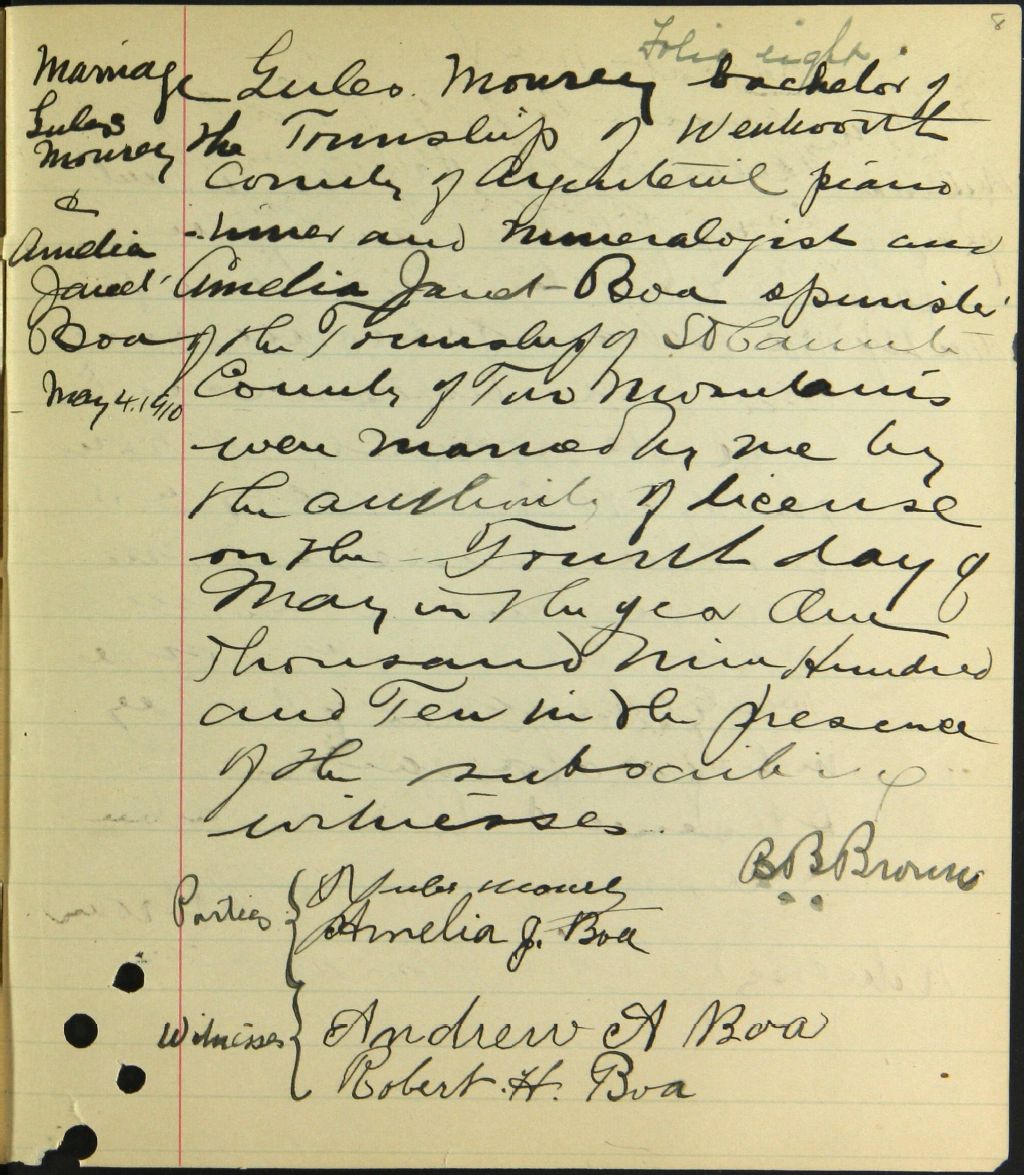 8
Folio eight
Marriage
Gules
Mourey
&
Amelia
Janet
Boa
May 4. 1910
Gules Mourey bachelor of
the Township of Wentworth
County of Argenteuil piano
- tuner and mineralogist and
Amelia Janet Boa spinster
of the Township of St Canute
County of Two Mountains
were married by me by
the authority of license
on the Fourth day of
May in the year One
Thousand Nine Hundred
and Ten in the presence
of the subscribing
witnesses.
B B Brown
Parties
Jules Mourey
Amelia J. Boa
Witnesses
Andrew A Boa
Robert. H. Boa